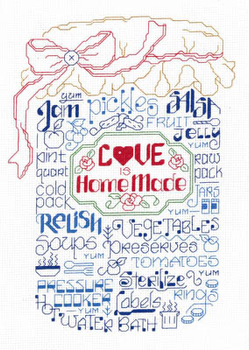 YUM
Jam pickles SALSA
FRUIT
YUM
JELLY
pint
quart
cold
pack
LOVE
is
Home Made
raw
pack
YUM
JARS
RELISH
VEGETABLES
YUM
Soups
PRESERVES
TOMATOES
Sterilize
PRESSURE
COOKER
YUM
Labels
RINGS
HOT WATER BATH